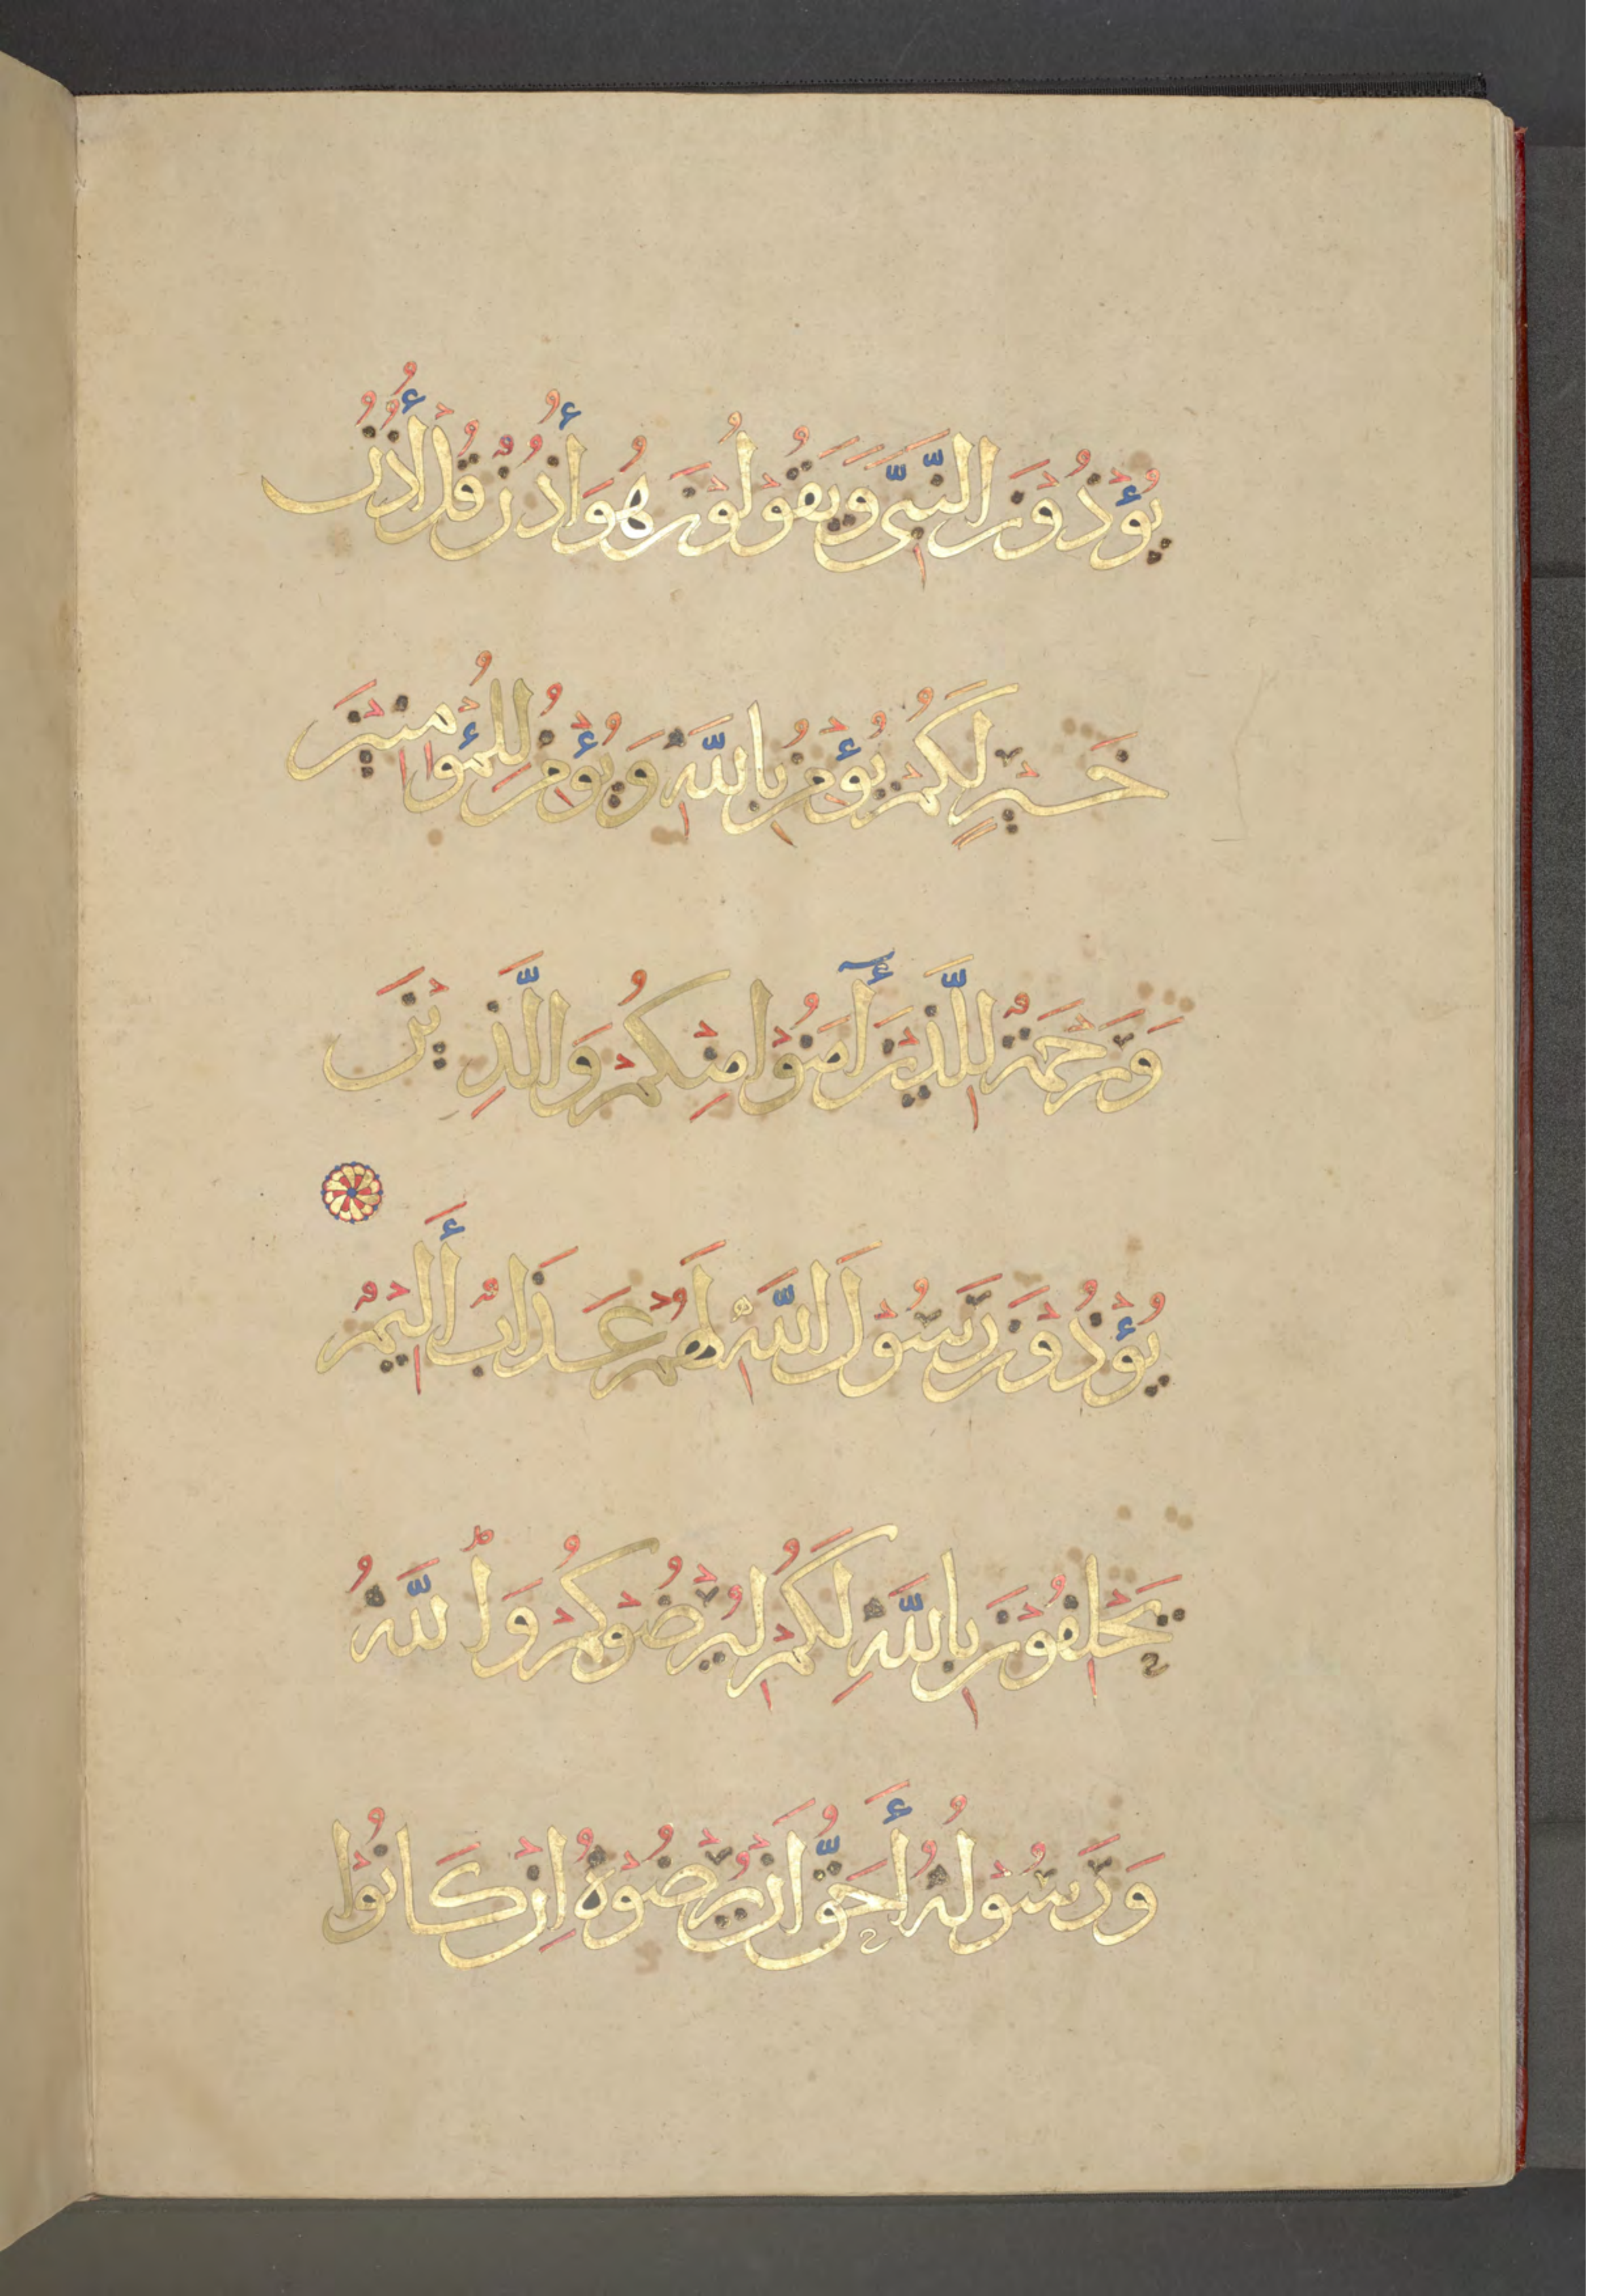 يُؤْذُوْنَ النَّبِىَّ وَيَقُوْلُوْنَ هُوَ أُذُنٌ قُلْ أُذُنُ
خَيْرٍ لَكُمْ يُؤْمِنُ بِاللَّهِ وَيُؤْمِنُ لِلْمُؤْمِنِيْنَ
وَرَحْمَةٌ لِلَّذِيْنَ أٓمَنُوْا مِنْكُمْ وَالَّذِيْنَ
يُؤْذُوْنَ رَسُوْلَ اللَّهِ لَهُمْ عَذَابٌ أَلِيْمٌ
يَحْلِفُوْنَ بِاللَّهِ لَكُمْ لِيُرْضُوْكُمْ وَاللَّهُ
وَرَسُوْلُهُ أَحَقُّ اَنْ يُرْضُوْهُ اِنْ كَانُوْا